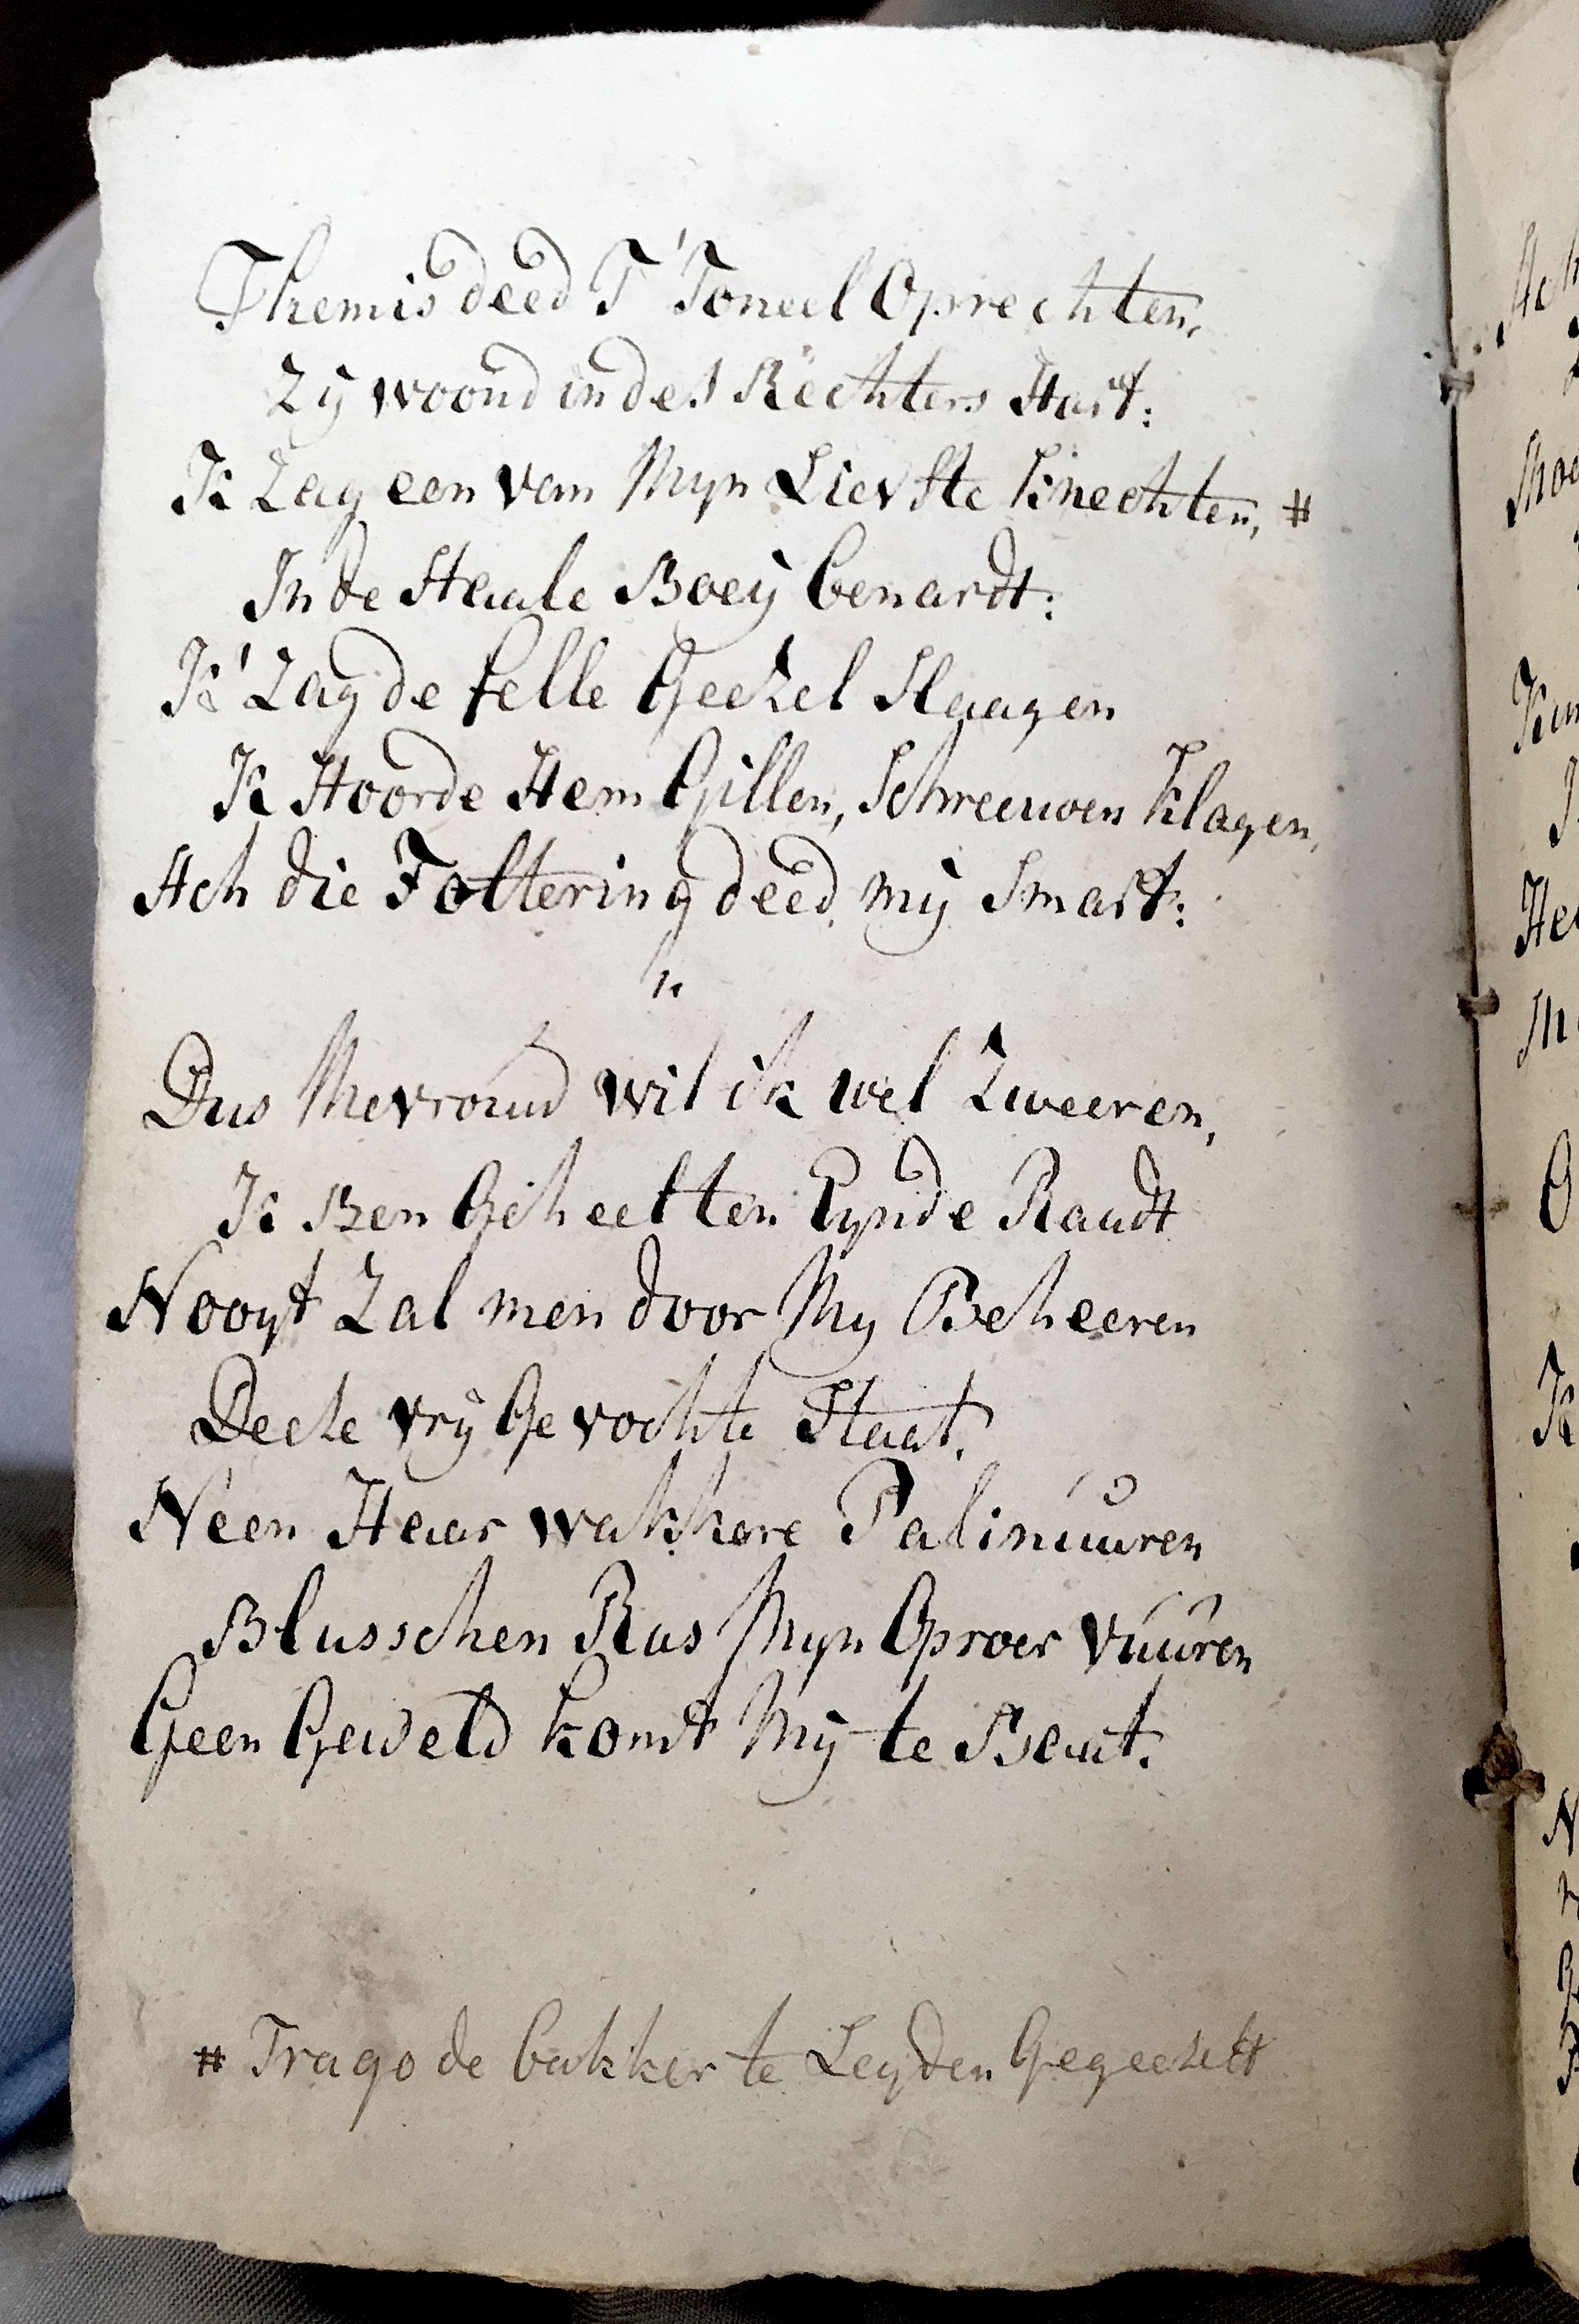 Themis deed T' Toneel Oprechten,
Zÿ woond in des Rechters Hart:
Ik Zag een van Myn Lievste Knechten, #
In de Staale Boeÿ benardt:
Ik' Zag de felle Geesel Slaagen
Ik Hoorde Hem Gillen, Schreeuwen Klagen,
Ach die Foltering deed mÿ Smart:
"
Dus Mevrouw wil ik wel Zweeren,
Ik Ben Geheel ten Eynde Raadt
Nooyt Zal men door My Beheeren
Deese vrÿ Gevochte Staat.
Néen Haar wakkere Palinuuren
Blusschen Ras Myn Oproer vuuren
Geen Geweld komt Mÿ te Baat.
# Trago de bakker te Leyden Gegeeselt